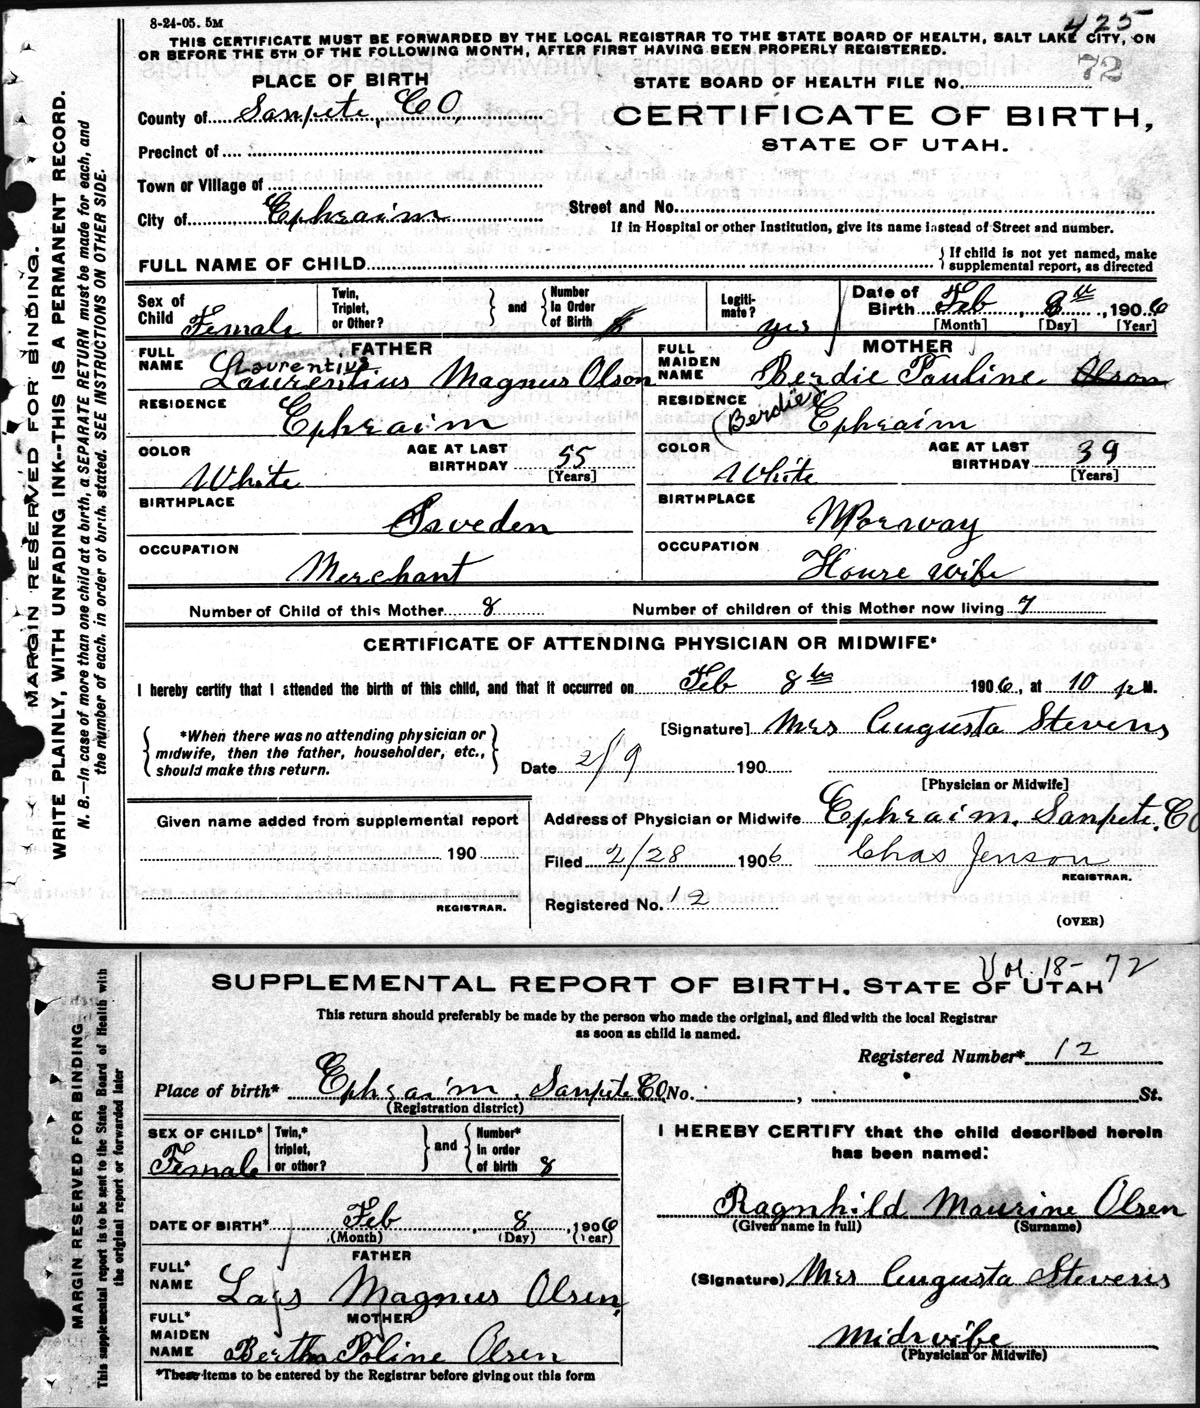 8-24-05. 5M
425
THIS CERTIFICATE MUST BE FORWARDED BY THE LOCAL REGISTRAR TO THE STATE BOARD OF HEALTH, SALT LAKE CITY, ON
OR BEFORE THE 5TH OF THE FOLLOWING MONTH, AFTER FIRST HAVING BEEN PROPERLY REGISTERED.
72
PLACE OF BIRTH
STATE BOARD OF HEALTH FILE No.
County of Sanpete, CO,
CERTIFICATE OF BIRTH,
STATE OF UTAH.
Precinct of
Town or Village of
City of Ephraim
Street and No.
If in Hospital or other Institution, give its name instead of Street and number.
FULL NAME OF CHILD
If child is not yet named, make
supplemental report, as directed
Sex of Child Female
Twin, Triplet, or Other?
and
Number In Order of Birth 8
Legitimate? yes
Date of Birth Feb 8th, 1906
[Month] [Day] [Year]
FATHER
FULL NAME Laurentius Magnus Olson
Laurentius
MOTHER
FULL MAIDEN NAME Berdie Pauline Olson
RESIDENCE Ephraim
RESIDENCE (Berdie) Ephraim
COLOR White
AGE AT LAST BIRTHDAY 55
[Years]
COLOR White
AGE AT LAST BIRTHDAY 39
[Years]
BIRTHPLACE Sweden
BIRTHPLACE Norway
OCCUPATION Merchant
OCCUPATION House wife
Number of Child of this Mother 8
Number of children of this Mother now living 7
CERTIFICATE OF ATTENDING PHYSICIAN OR MIDWIFE*
I hereby certify that I attended the birth of this child, and that it occurred on Feb 8th 1906, at 10 p M.
*When there was no attending physician or
midwife, then the father, householder, etc.,
should make this return.
[Signature] Mrs Augusta Stevens
Date 2/9 190
[Physician or Midwife]
Given name added from supplemental report
190
REGISTRAR.
Address of Physician or Midwife Ephraim, Sanpete, CO
Filed 2/28 1906 Chas Jenson
REGISTRAR.
Registered No. 12
(OVER)
MARGIN RESERVED FOR BINDING.
WRITE PLAINLY, WITH UNFADING INK--THIS IS A PERMANENT RECORD.
N. B.—In case of more than one child at a birth, a SEPARATE RETURN must be made for each, and
the number of each, in order of birth, stated. SEE INSTRUCTIONS ON OTHER SIDE.
Vol. 18-72
SUPPLEMENTAL REPORT OF BIRTH, STATE OF UTAH
This return should preferably be made by the person who made the original, and filed with the local Registrar
as soon as child is named.
Registered Number* 12
Place of birth* Ephraim, Sanpete CO No. , St.
(Registration district)
SEX OF CHILD* Female
Twin,* triplet, or other?
and
Number* in order of birth 8
I HEREBY CERTIFY that the child described herein
has been named:
Ragnhild Maurine Olsen
(Given name in full) (Surname)
DATE OF BIRTH* Feb, 8, 1906
(Month) (Day) (Year)
FATHER
FULL* NAME Lars Magnus Olsen,
(Signature) Mrs Augusta Stevens
MOTHER
FULL* MAIDEN NAME Bertha Poline Olsen
Midwife
(Physician or Midwife)
*These items to be entered by the Registrar before giving out this form
MARGIN RESERVED FOR BINDING
This supplemental report is to be sent to the State Board of Health with
the original report or forwarded later